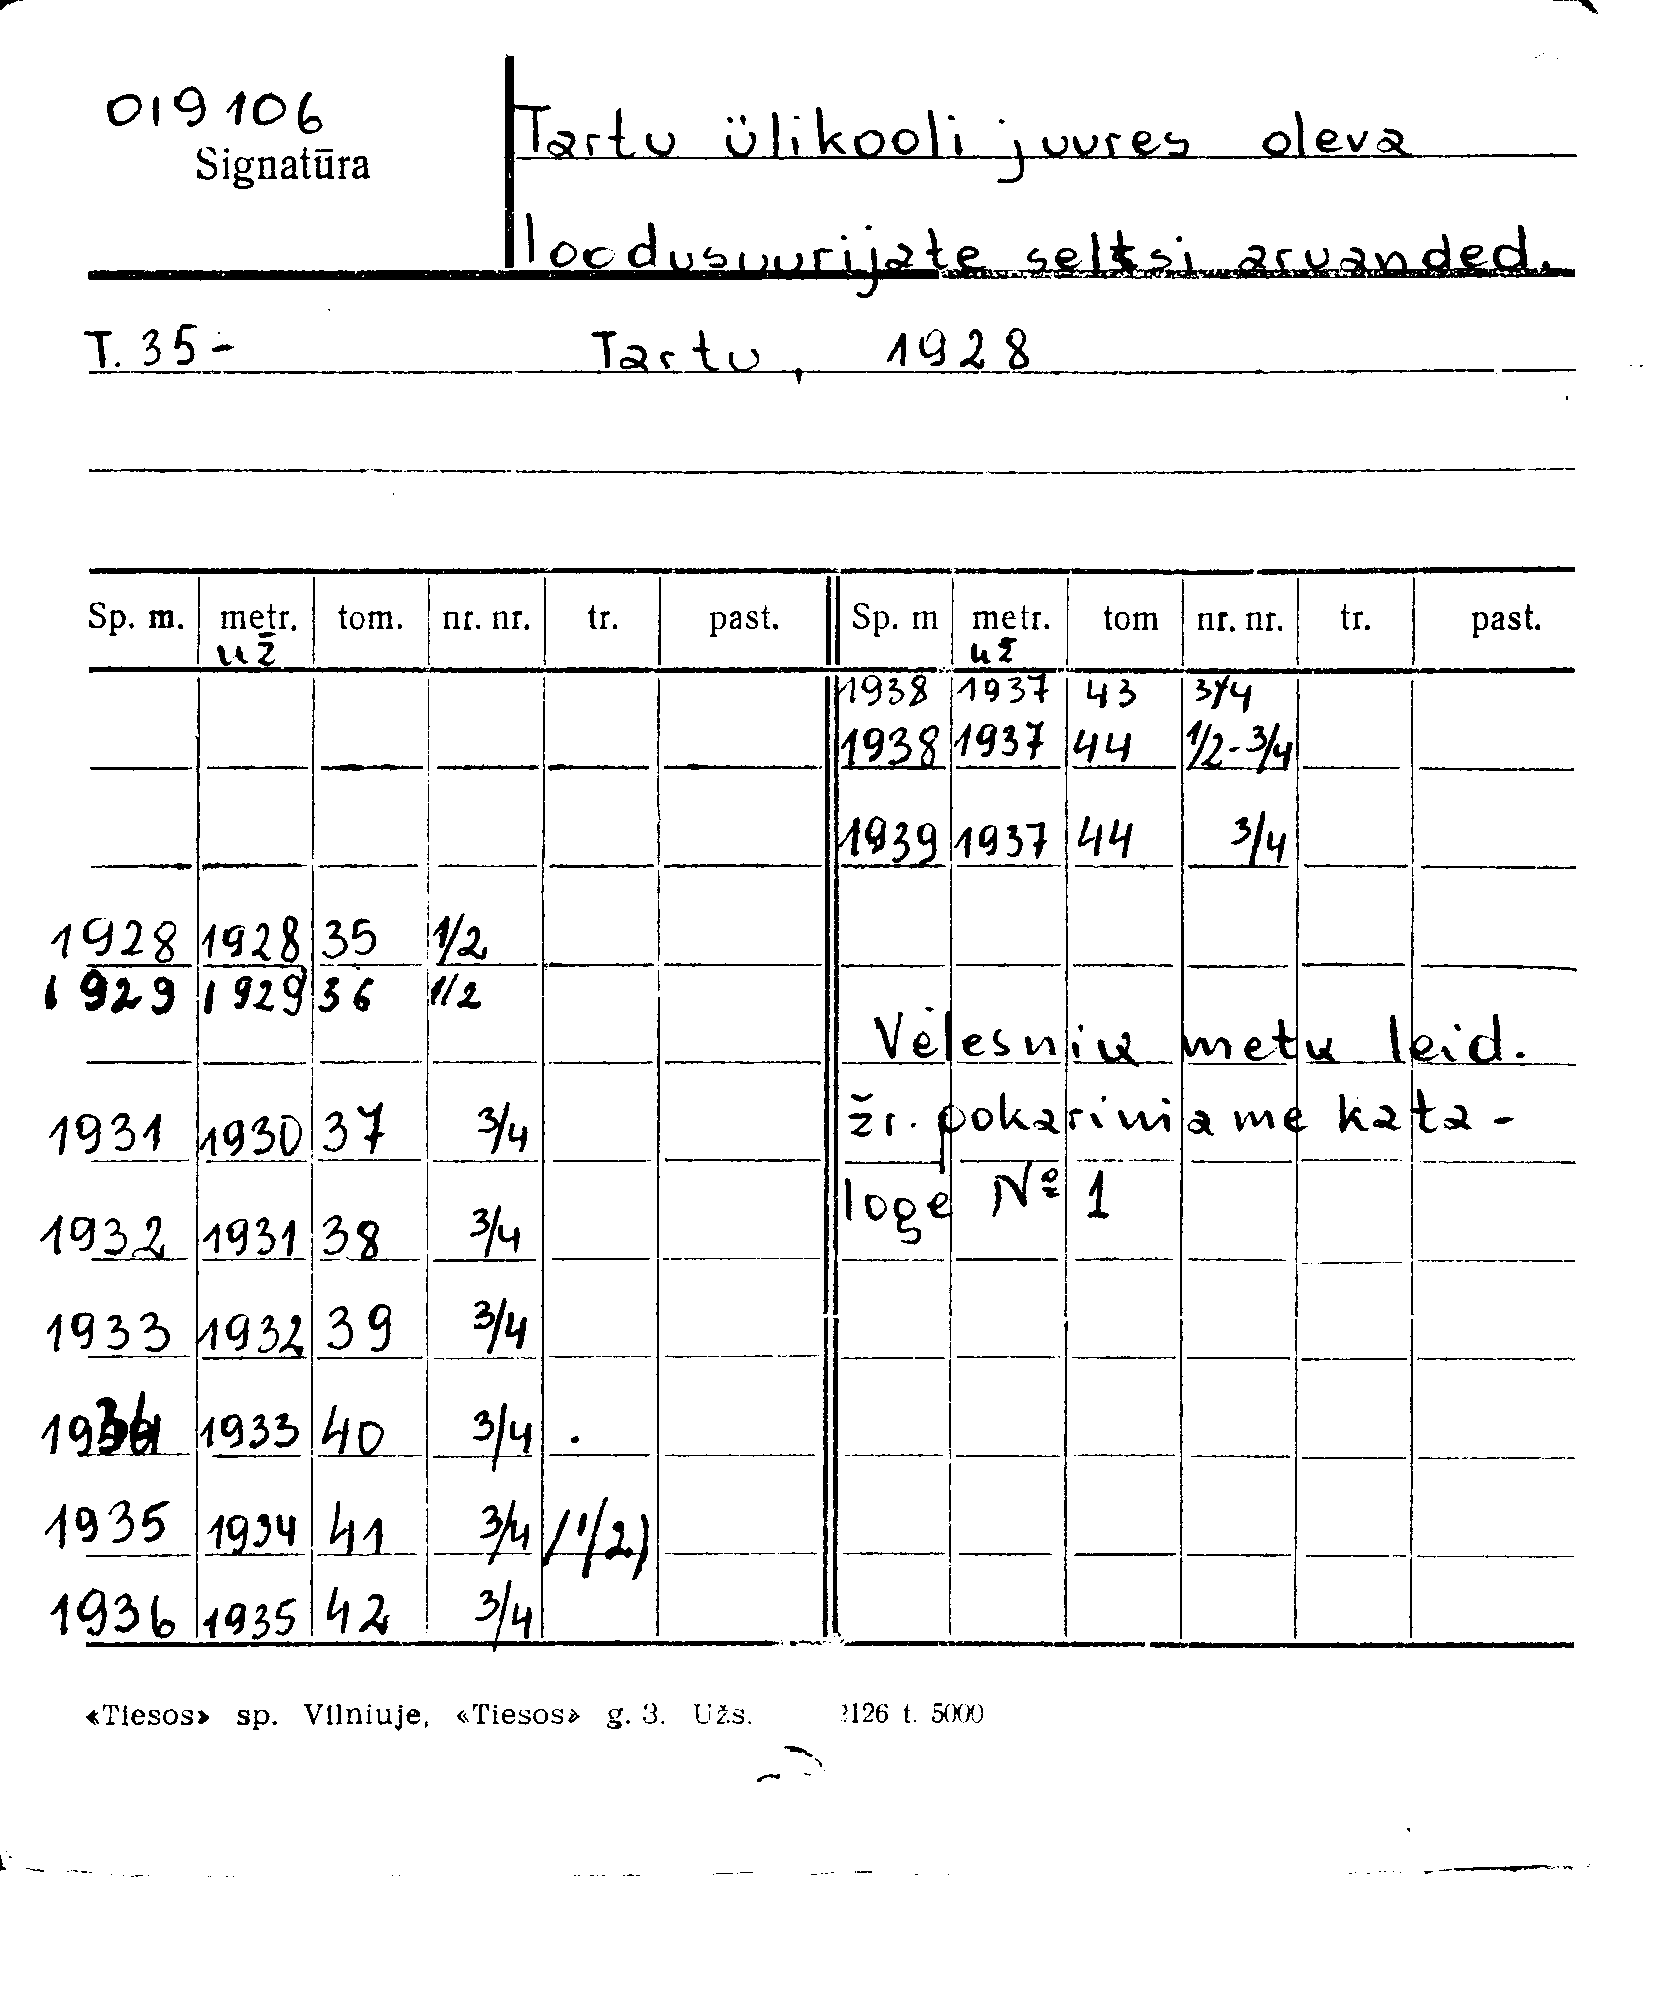 019106
Signatūra
Tartu ülikooli juures oleva
loodusuurijate seltsi aruanded.
T. 35 - Tartu, 1928
Sp. m. metr. tom. nr. nr. tr. past. Sp. m metr. tom nr. nr. tr. past.
už už
1938 1937 43 3/4
1938 1937 44 1/2-3/4
1939 1937 44 3/4
1928 1928 35 1/2
1929 1929 36 1/2
Vėlesnių metų leid.
1931 1930 37 3/4 žr. pokariniame kata-
1932 1931 38 3/4 loge № 1
1933 1932 39 3/4
1934 1933 40 3/4
1935 1934 41 3/4 (1/2)
1936 1935 42 3/4
«Tiesos» sp. Vilniuje, «Tiesos» g. 3. Užs. 2126 t. 5000